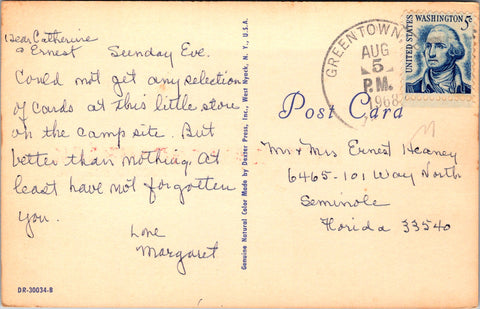 Dear Catherine
& Ernest Sunday Eve.
Could not get any selection
of cards at this little store
on the camp site. But
better than nothing. At
least have not forgotten
you.
Love
Margaret
DR-30034-B
Genuine Natural Color Made by Dexter Press, Inc., West Nyack, N. Y., U.S.A.
GREENTOWN,
AUG
5
P.M.
1968
UNITED STATES
WASHINGTON 5c
Post Card
Mr & Mrs Ernest Heaney
6465-101 Way North
Seminole
Florida 33540